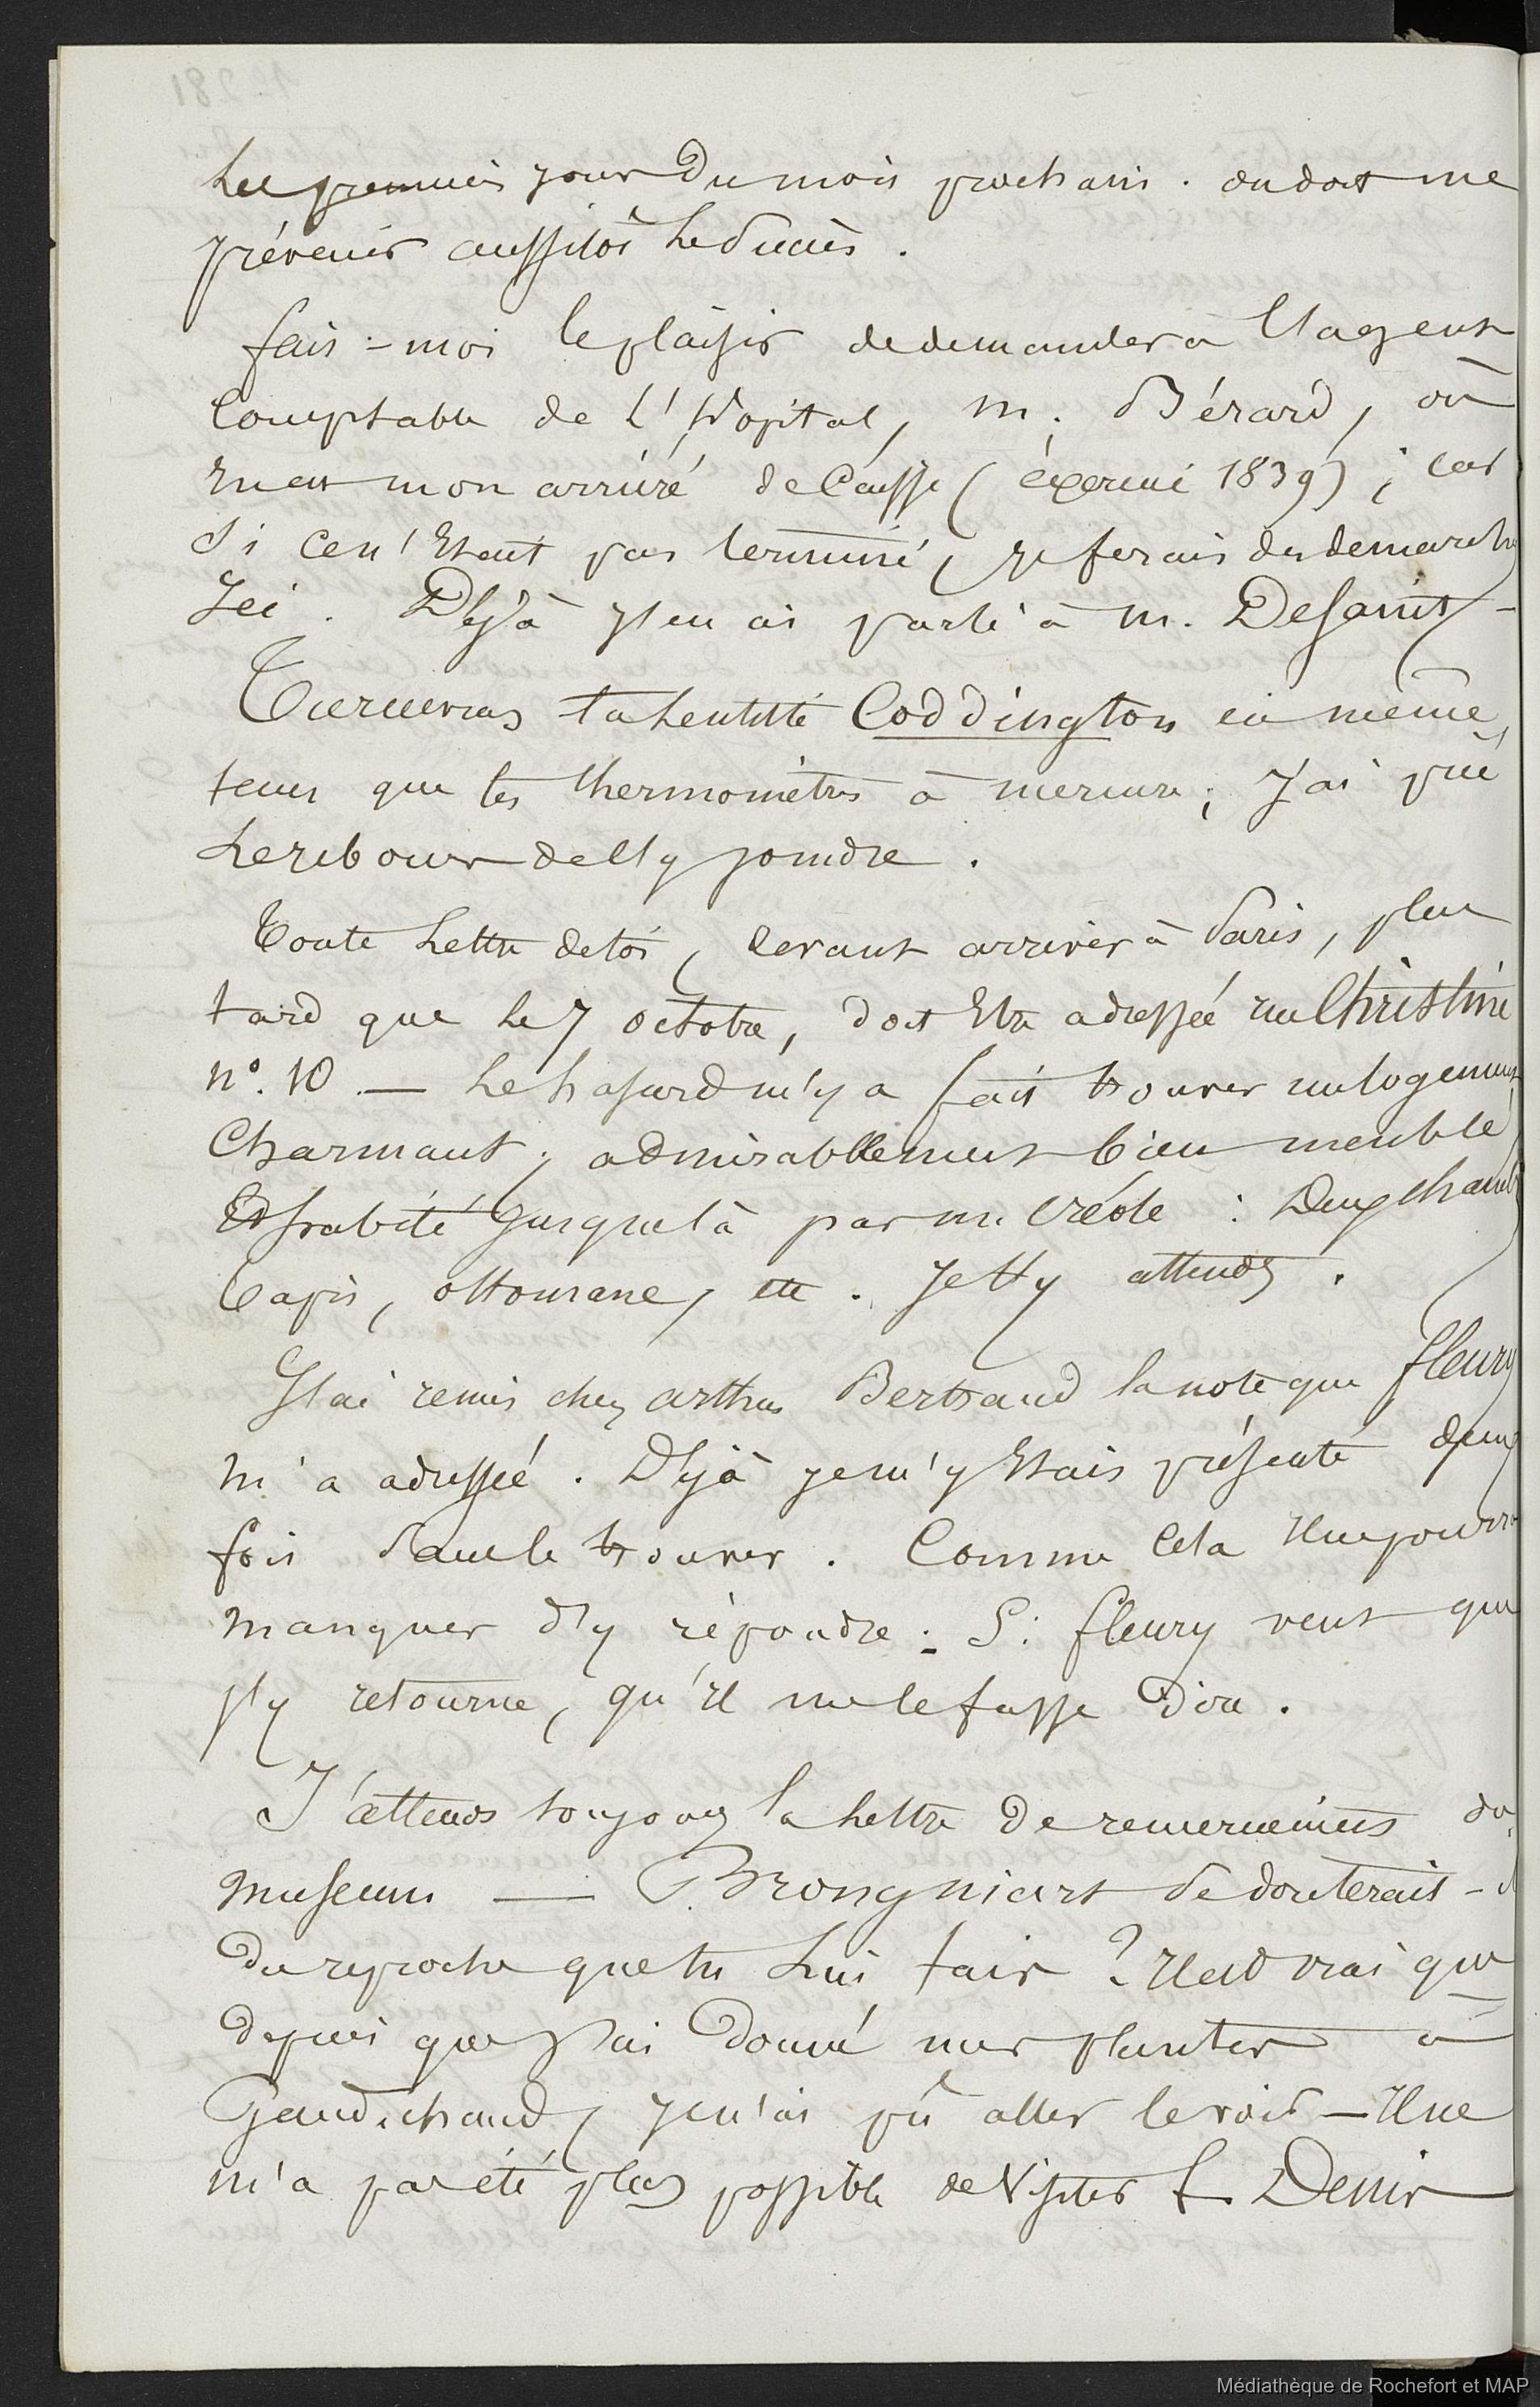 Les premiers jours du mois prochain. on doit me
prévenir aussitôt le succès.
fais-moi le plaisir de demander à l'agent
Comptable de l'Hopital, m. Bérard, où
en est mon arriéré de Caisse (éxercice 1839); car
si ce n'etait pas terminé, je ferais des demarches
Ici. Déjà j'en ai parlé à m. Desaint-
Tu recevras ta lentille Coddington en même
tems que les thermomètres à mercure; J'ai prié
Lerebours de l'y joindre.
Toute Lettre de toi, devant arriver à Paris, plus
tard que le 7 octobre, doit Etre adressée rue Christine
n°. 10 — Le hasard m'y a fait trouver un logement
Charmant, admirablement bien meublé
Et habité Jusque là par un Créole : Deux chamb
Tapis, ottomane, etc. Je t'y attends.
J'ai remis chez arthus Bertrand la note que fleury
m'a adressée. Déjà je m'y Etais présenté deux
fois sans le trouver. Comme Cela Il ne pourra
manquer d'y répondre : Si fleury veut que
j'y retourne, qu'Il me le fasse dire.
J'attends toujours la Lettre de remerciemens du
museum — Brongniart se douterait-il
du reproche que tu Lui fais ? Il est vrai que
depuis que J'ai donné mes plantes à
Gaudichaud, je n'ai pû aller le voir — Il ne
m'a pas été plus possible de Visiter St Denis
Médiathèque de Rochefort et MAP